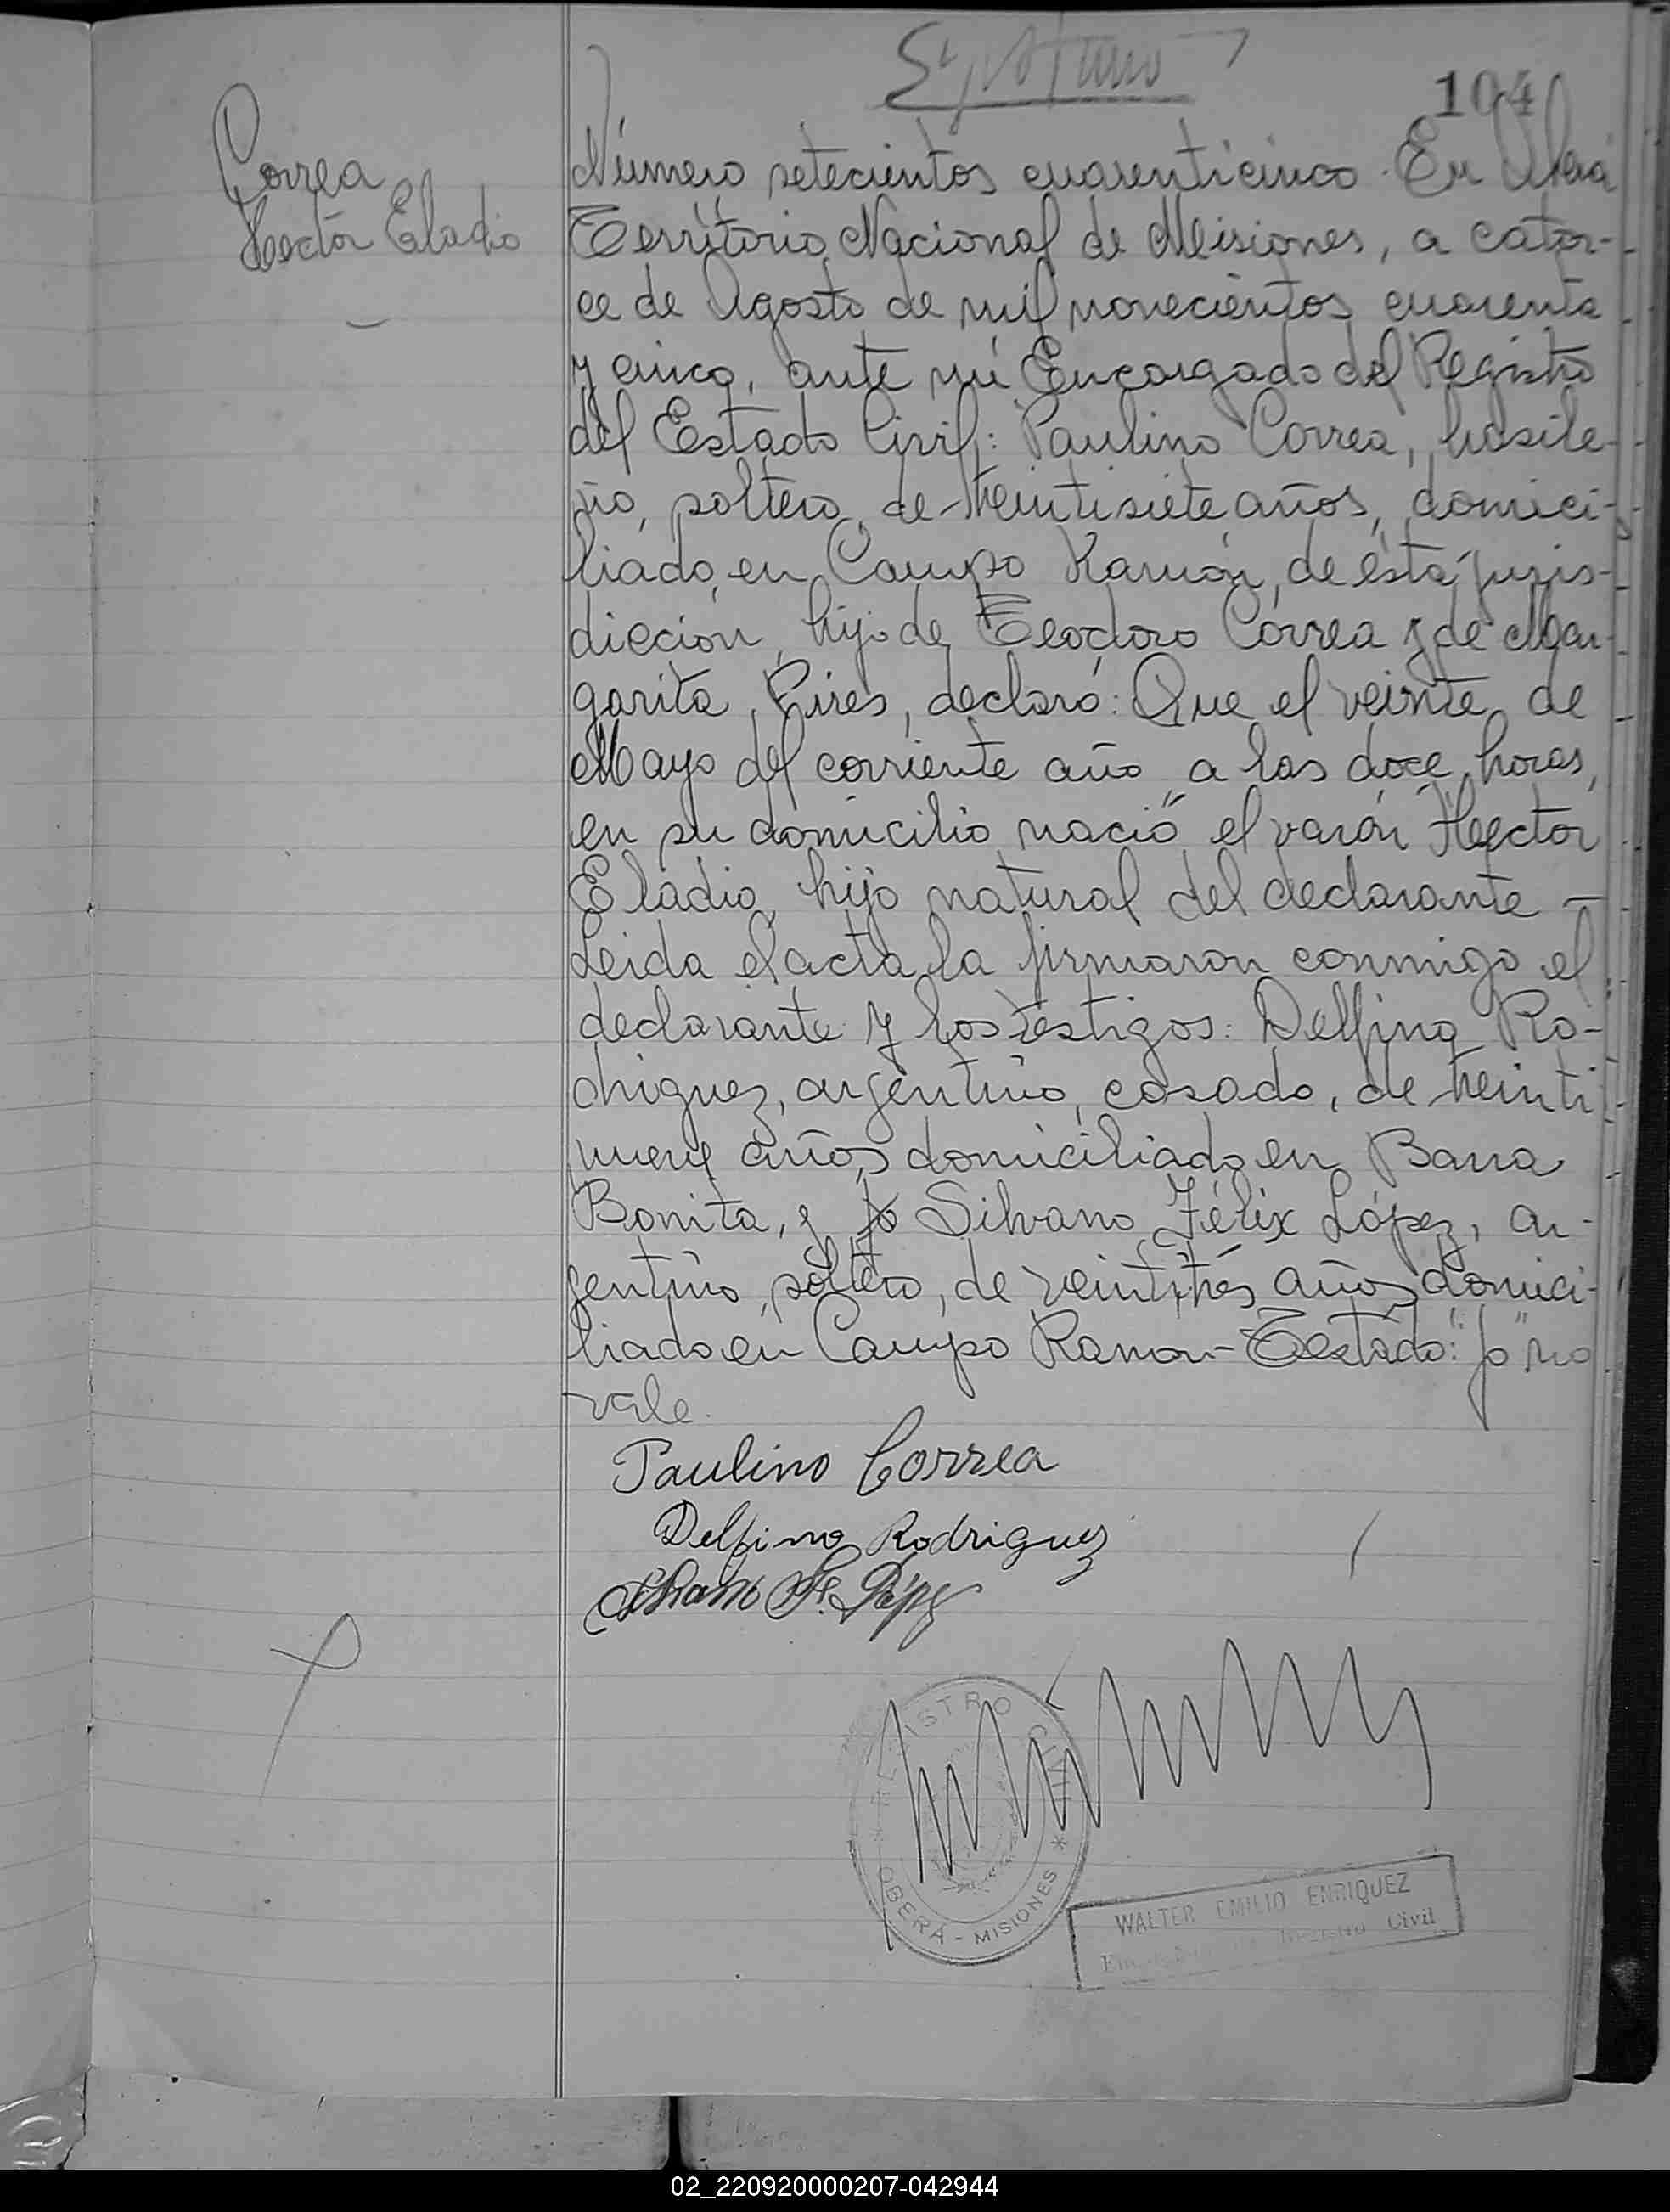 104
Correa
Hector Eladio
Número setecientos cuarenticinco. En Oberá
Territorio Nacional de Misiones, a cator-
ce de Agosto de mil novecientos cuarenta
y cinco, ante mí Encargado del Registro
del Estado Civil: Paulino Correa, brasile-
ño, soltero, de treintisiete años, domici-
liado en Campo Ramón, de ésta juris-
dicción, hijo de Teodoro Correa y de Mar-
garita Pires, declaró: Que el veinte de
Mayo del corriente año a las doce horas,
en su domicilio nació el varón Hector
Eladio hijo natural del declarante —
Leida el acta la firmaron conmigo el
declarante y los testigos: Delfino Ro-
driguez, argentino, casado, de treinti
nueve años domiciliado en Barra
Bonita, y fo Silvano Félix López, ar-
gentino, soltero, de veintitrés años domici-
liado en Campo Ramon - Testado: "fo" no
vale.
Paulino Correa
Delfino Rodriguez
Silvano F. López
REGISTRO CIVIL
OBERÁ - MISIONES *
WALTER EMILIO ENRIQUEZ
Registro Civil
02_220920000207-042944